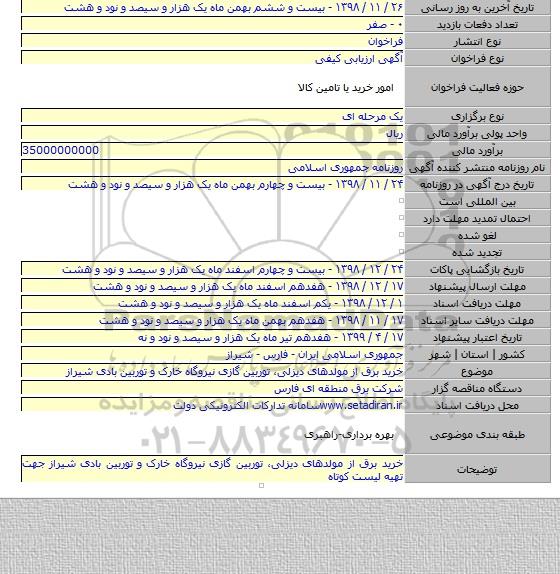 تاریخ آخرین به روز رسانی ۲۶ / ۱۱ / ۱۳۹۸ - بیست و ششم بهمن ماه یک هزار و سیصد و نود و هشت
تعداد دفعات بازدید ۰ - صفر
نوع انتشار فراخوان
نوع فراخوان آگهی ارزیابی کیفی
حوزه فعالیت فراخوان امور خرید با تامین کالا
نوع برگزاری یک مرحله ای
واحد پولی برآورد مالی ریال
برآورد مالی 35000000000
نام روزنامه منتشر کننده آگهی روزنامه جمهوری اسلامی
تاریخ درج آگهی در روزنامه ۲۴ / ۱۱ / ۱۳۹۸ - بیست و چهارم بهمن ماه یک هزار و سیصد و نود و هشت
بین المللی است
احتمال تمدید مهلت دارد
لغو شده
تجدید شده
تاریخ بازگشایی پاکات ۲۴ / ۱۲ / ۱۳۹۸ - بیست و چهارم اسفند ماه یک هزار و سیصد و نود و هشت
مهلت ارسال پیشنهاد ۱۷ / ۱۲ / ۱۳۹۸ - هفدهم اسفند ماه یک هزار و سیصد و نود و هشت
مهلت دریافت اسناد ۱ / ۱۲ / ۱۳۹۸ - یکم اسفند ماه یک هزار و سیصد و نود و هشت
مهلت دریافت سایر اسناد ۱۷ / ۱۱ / ۱۳۹۸ - هفدهم بهمن ماه یک هزار و سیصد و نود و هشت
تاریخ اعتبار پیشنهاد ۱۷ / ۴ / ۱۳۹۹ - هفدهم تیر ماه یک هزار و سیصد و نود و نه
کشور | استان | شهر جمهوری اسلامی ایران - فارس - شیراز
موضوع خرید برق از مولدهای دیزلی، توربین گازی نیروگاه خارک و توربین بادی شیراز
دستگاه مناقصه گزار شرکت برق منطقه ای فارس
محل دریافت اسناد www.setadiran.irسامانه تدارکات الکترونیکی دولت
طبقه بندی موضوعی بهره برداری-راهبری
توضیحات خرید برق از مولدهای دیزلی، توربین گازی نیروگاه خارک و توربین بادی شیراز جهت
تهیه لیست کوتاه
۰۲۱-۸۸۳۴۹۶۷۰-۵